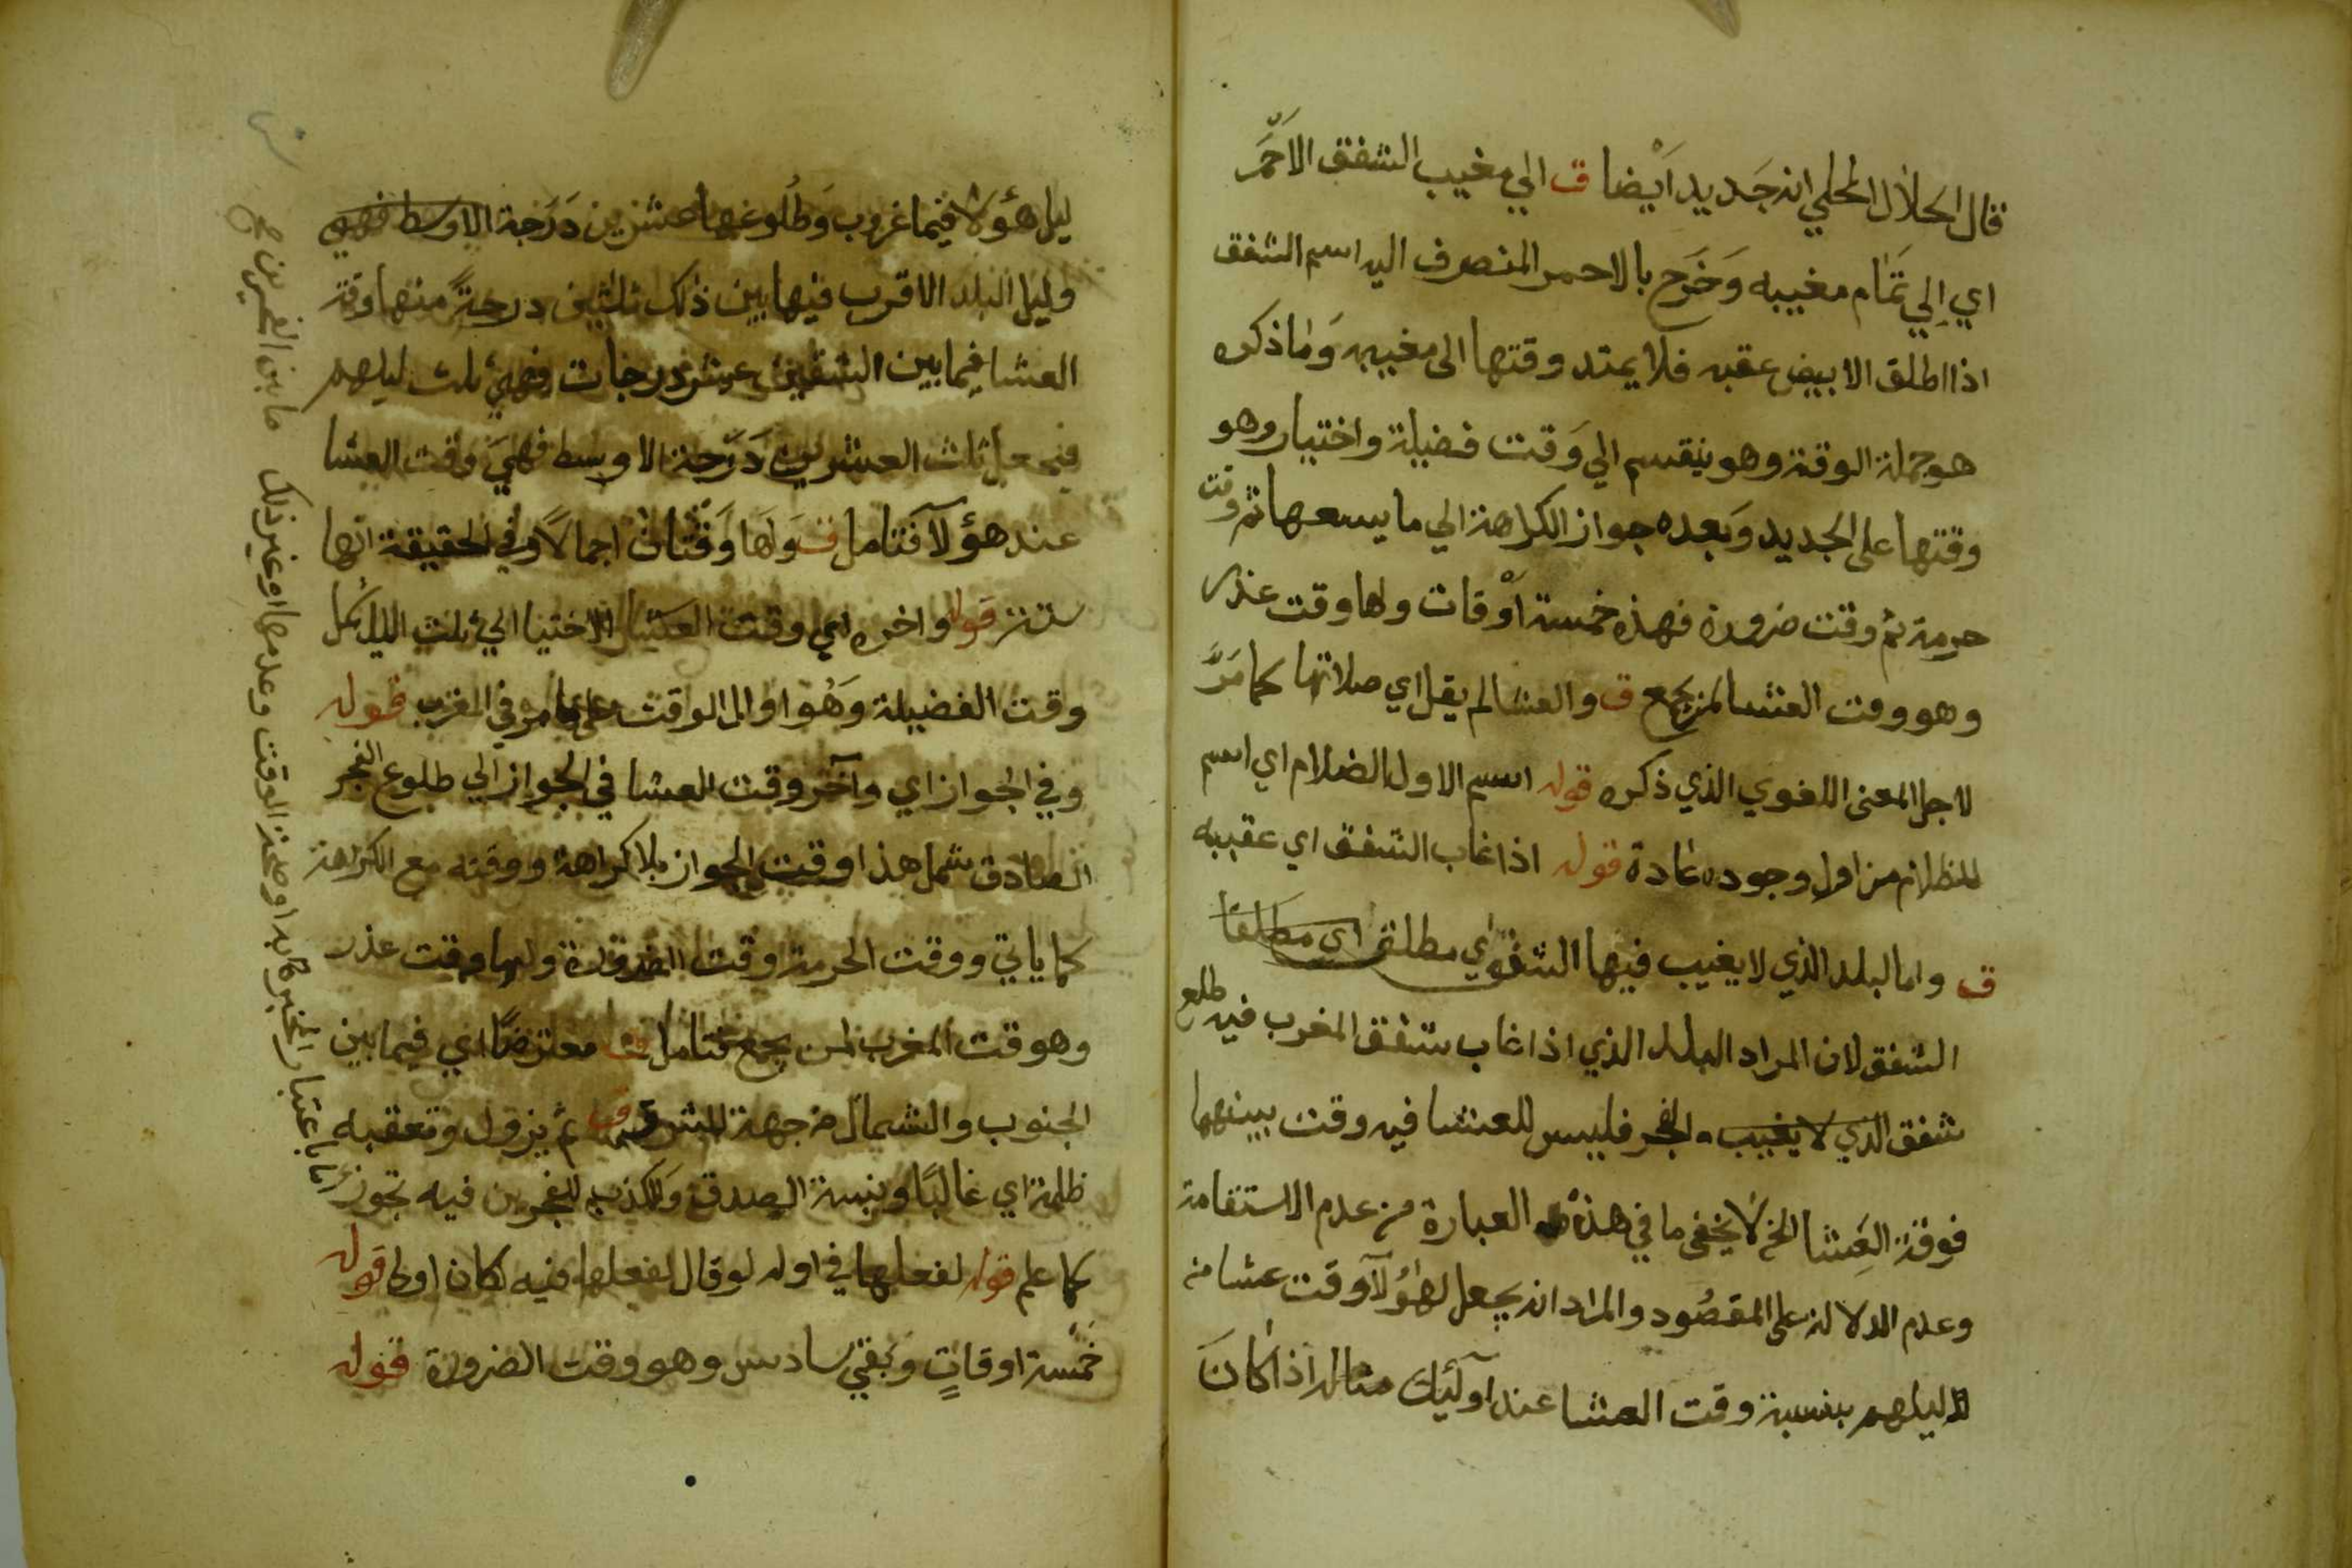 قال الجلال المحلي انه جَديد اَيْضا ق الي مغيب الشفق الاَحمَر
اي اِلي تَمَام مغيبه وَخَرج بالاحمر المنصرف اليه اسم الشفق
اذا اطلق الابيض عقبه فلا يمتد وقتها الى مغيبه وَما ذكره
هو جملة الوقت وهو ينقسم الي وَقت فضيلة واختيار وهو
وقتها على الجديد وَبعده جواز الكراهة الي ما يسعها ثم وقت
حرمة ثم وقت ضرورة فهذه خمسة اَوْقات ولها وقت عذر
وهو وقت العشا لمن يجمع ق والعشا لم يقل اي صلاتها كما مَرّ
لاجل المعنى اللغوي الذي ذكره قوله اسم الاول الظلام اي اسم
للظلام من اول وجوده عادة قوله اذا غاب الشفق اي عقبه
ق واما البلد الذي لا يغيب فيها الشفق اي مطلقا اي مطلقا
الشفق لان المراد البلد الذي اذا غاب شفق المغرب فيه طلع
شفق الذي لا يغيب الفجر فليس للعشا فيه وقت بينهما
فوقت العِشا الخ لا يخفى ما في هذه العبارة من عدم الاستقامة
وعدم الدلالة على المقصُود والمراد انه يجعل لهؤلآ وقت عشا من
ليلهم بنسبة وقت العشا عند اولئك مثاله اذا كانَ
ليل هؤلا فيما غروب وَطلوعها عشرين دَرَجة الاوسط فهي
وليل البلد الاقرب فيها بين ذلك ثلثين درجةً منها وقت
العشا فيما بين الشفقين عشر درجات فهي ثلث ليلهم
فيجعل ثلث العشرين دَرَجة الاوسط فهيَ وقت العشا
عند هؤلآ فتامل ق وَلَها وَقْتان اجمالاً وفي الحقيقة انها
ستة قوله واخره اي وقت العشا الاختيا الي ثلث الليل كمل
وقت الفضيلة وَهُو اول الوقت على ما مر في المغرب قوله
وفي الجواز اي وآخر وقت العشا في الجواز الي طلوع الفجر
الصادق شمل هذا وقت الجواز بلا كراهة ووقته مع الكراهة
كما ياتي ووقت الحرمة وقت الضرورة ولها وقت عذر
وهو وقت المغرب لمن يجمع فتامل ق معترضًا اي فيما بين
الجنوب والشمال من جهة المشرق ق ثم يزول وتعقبه
ظلمة اي غالبًا ونسبة الصدق وَالكذب للفجرين فيه تجوز
كما علم قوله لفعلها في اوله لو قال لفعلها فيه لكان اولى قوله
خَمْسة اوقاتٍ وَبقيَ سادس وهو وقت الضرورة قوله
اما باعتبار المخبر به او صحة الوقت وعدمها او غير ذلك ما بين الفجرين